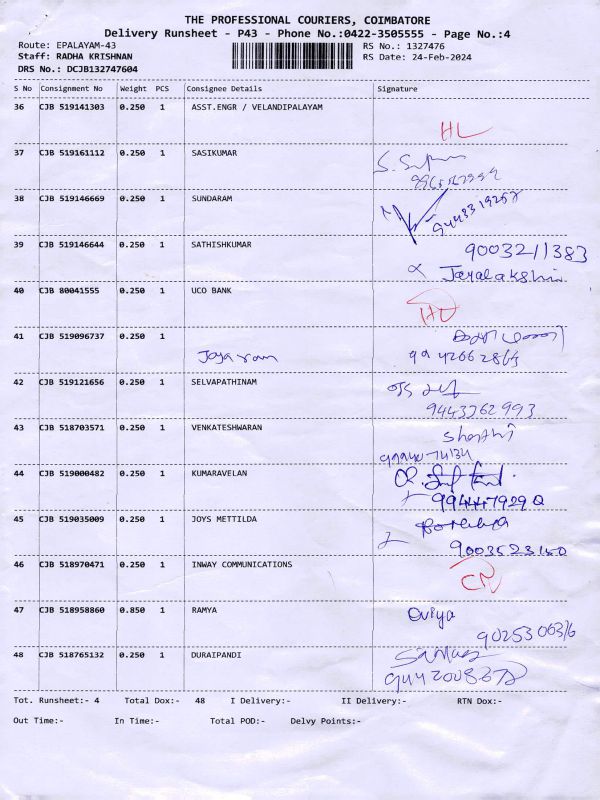 THE PROFESSIONAL COURIERS, COIMBATORE
Delivery Runsheet - P43 - Phone No.:0422-3505555 - Page No.:4
Route: EPALAYAM-43 RS No.: 1327476
Staff: RADHA KRISHNAN RS Date: 24-Feb-2024
DRS No.: DCJB132747604
S No Consignment No Weight PCS Consignee Details Signature
36 CJB 519141303 0.250 1 ASST.ENGR / VELANDIPALAYAM
HL
37 CJB 519161112 0.250 1 SASIKUMAR
38 CJB 519146669 0.250 1 SUNDARAM
9443319257
39 CJB 519146644 0.250 1 SATHISHKUMAR
9003211383
Jayalakshmi
40 CJB 80041555 0.250 1 UCO BANK
41 CJB 519096737 0.250 1
Jayaram
42 CJB 519121656 0.250 1 SELVAPATHINAM
9443262993
43 CJB 518703571 0.250 1 VENKATESHWARAN
Shanthi
44 CJB 519000482 0.250 1 KUMARAVELAN
45 CJB 519035009 0.250 1 JOYS METTILDA
9003523150
46 CJB 518970471 0.250 1 INWAY COMMUNICATIONS
CN
47 CJB 518958860 0.850 1 RAMYA Oviya
9025306316
48 CJB 518765132 0.250 1 DURAIPANDI
Tot. Runsheet:- 4 Total Dox:- 48 I Delivery:- II Delivery:- RTN Dox:-
Out Time:- In Time:- Total POD:- Delvy Points:-